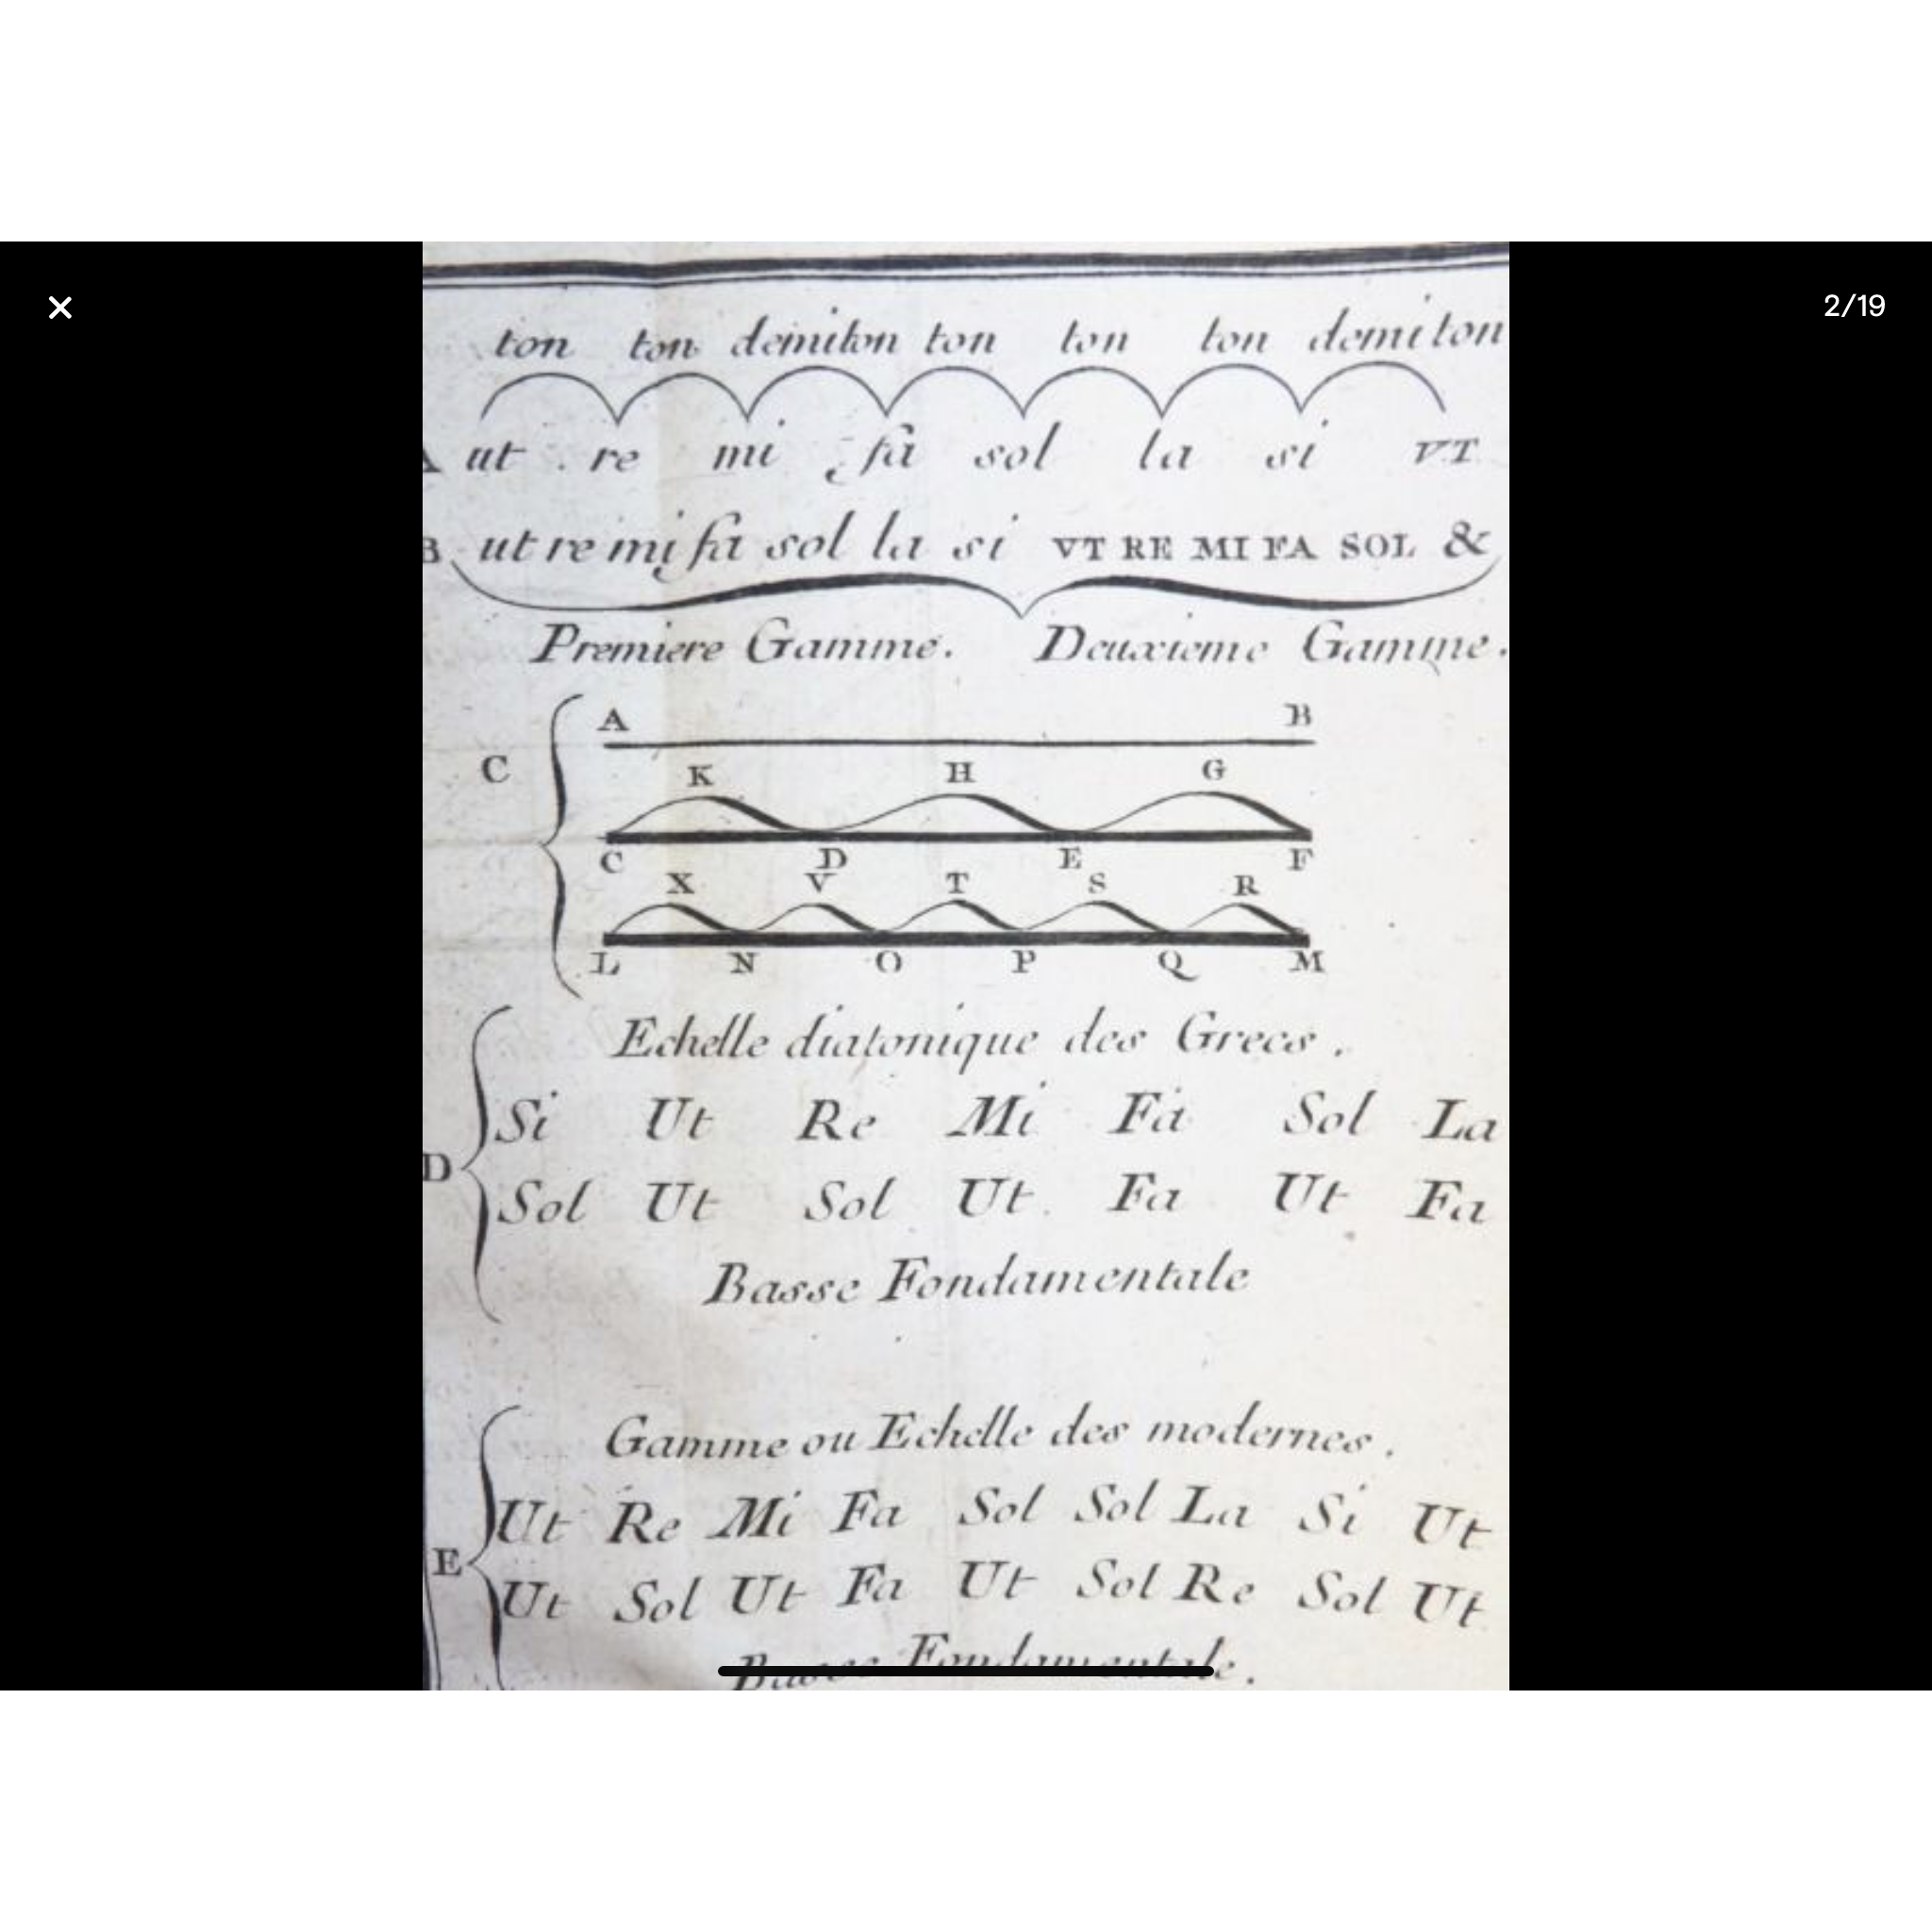 2/19
ton ton demiton ton ton ton demiton
A ut re mi fa sol la si VT
B ut re mi fa sol la si VT RE MI FA SOL &
Premiere Gamme. Deuxieme Gamme.
A B
C
K H G
C D E F
X V T S R
L N O P Q M
Echelle diatonique des Grecs.
Si Ut Re Mi Fa Sol La
D
Sol Ut Sol Ut Fa Ut Fa
Basse Fondamentale
Gamme ou Echelle des modernes.
Ut Re Mi Fa Sol Sol La Si Ut
E
Ut Sol Ut Fa Ut Sol Re Sol Ut
Basse Fondamentale.